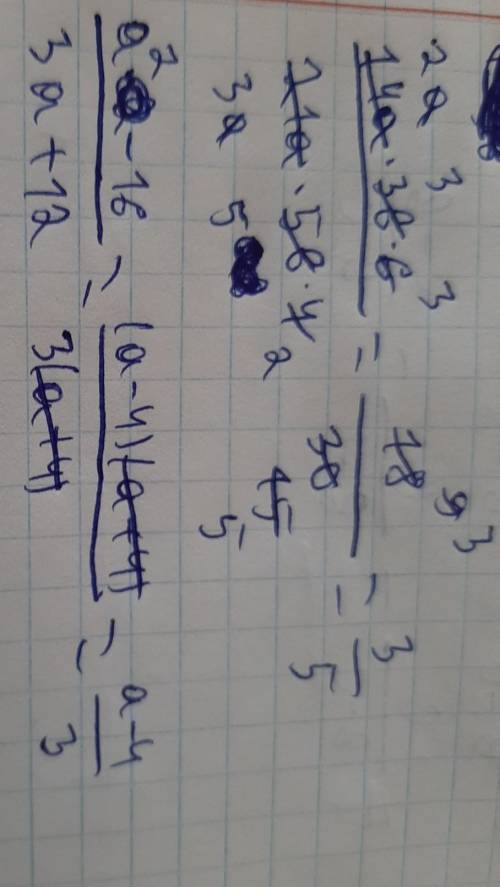 2a 3 3
14a · 38 · 6 / 21a · 58 · 4 = 18 / 30 = 3 / 5
3a 5 2
9 3
15
5
a² - 16 / 3a + 12 = (a-4)(a+4) / 3(a+4) = a-4 / 3